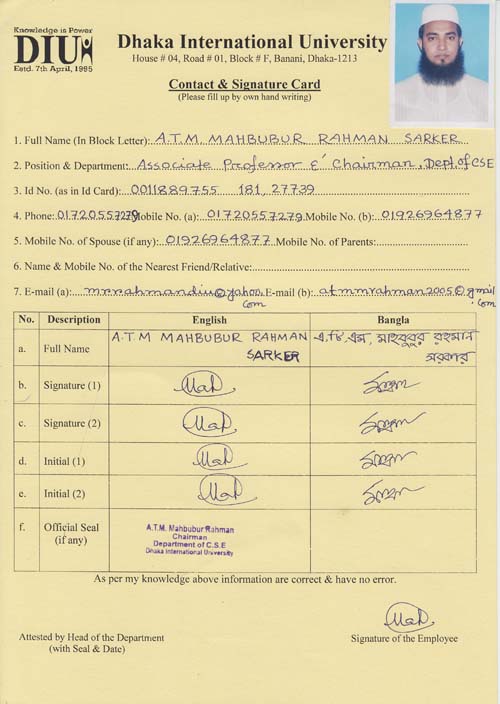 Knowledge is Power
DIU
Estd. 7th April, 1995
Dhaka International University
House # 04, Road # 01, Block # F, Banani, Dhaka-1213
Contact & Signature Card
(Please fill up by own hand writing)
1. Full Name (In Block Letter): A.T.M. MAHBUBUR RAHMAN SARKER
2. Position & Department: Associate Professor & Chairman, Dept. of CSE
3. Id No. (as in Id Card): 0011889755 181, 27739
4. Phone: 01720557279 Mobile No. (a): 01720557279 Mobile No. (b): 01926964877
5. Mobile No. of Spouse (if any): 01926964877 Mobile No. of Parents:
6. Name & Mobile No. of the Nearest Friend/Relative:
7. E-mail (a): mrrahmandiu@yahoo.com E-mail (b): atmmrahman2005@gmail.com
No. Description English Bangla
a. Full Name A.T.M MAHBUBUR RAHMAN SARKER এ.টি.এম. মাহবুবুর রহমান সরকার
b. Signature (1)
c. Signature (2)
d. Initial (1)
e. Initial (2)
f. Official Seal (if any)
A.T.M. Mahbubur Rahman
Chairman
Department of C.S.E
Dhaka International University
As per my knowledge above information are correct & have no error.
Attested by Head of the Department
(with Seal & Date)
Signature of the Employee